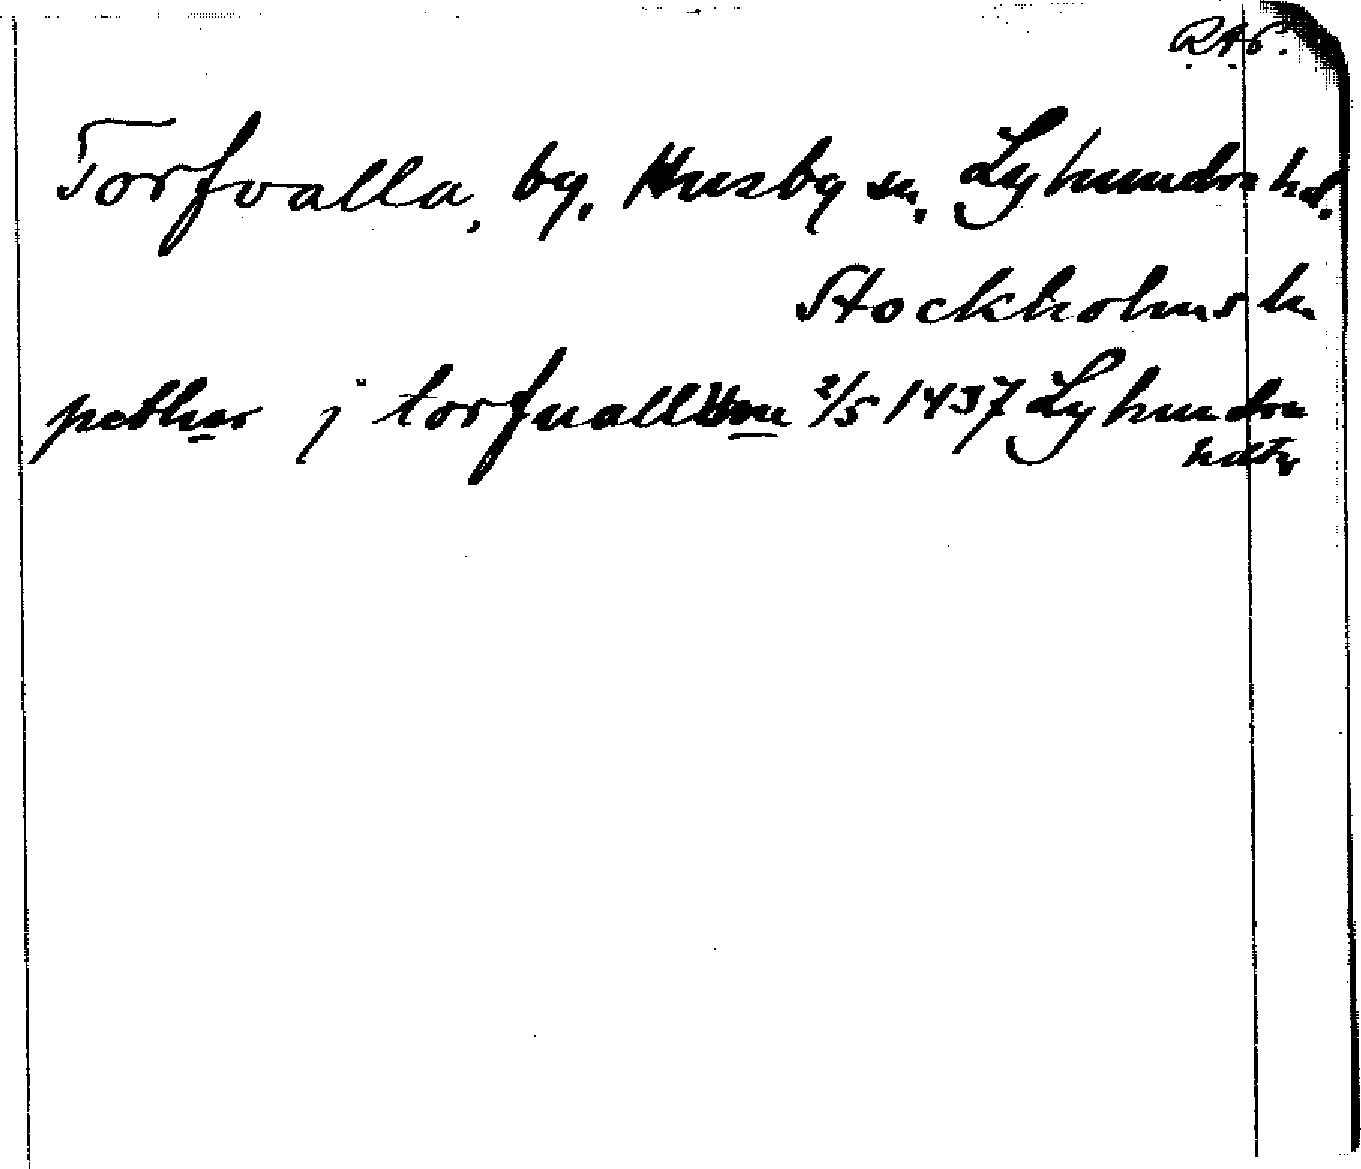 R.A.P.
Torfvalla, by, Husby sn, Lyhundra hd.
Stockholms l.
pether j torfual 2/5 1437 Lyhundra
hdtg